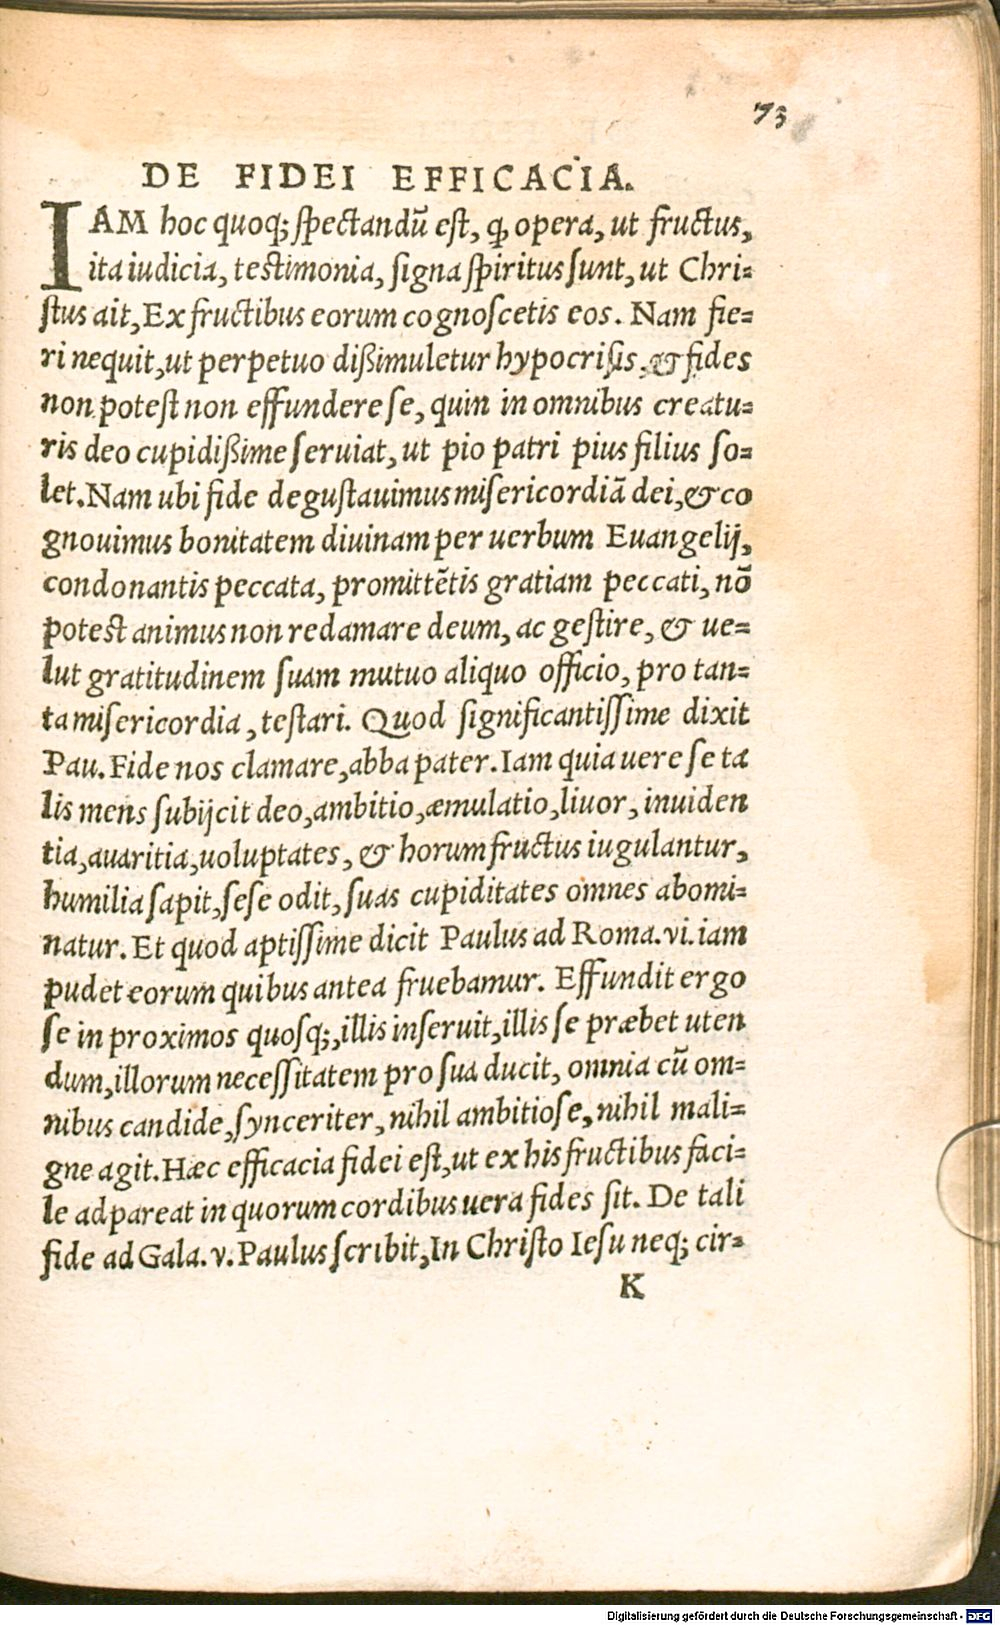 73
DE FIDEI EFFICACIA.
IAM hoc quoq; ſpectandū eſt, ꝙ opera, ut fructus,
ita iudicia, testimonia, ſigna ſpiritus ſunt, ut Chri=
ſtus ait, Ex fructibus eorum cognoſcetis eos. Nam fie=
ri nequit, ut perpetuo dißimuletur hypocriſis, & fides
non poteſt non effundere ſe, quin in omnibus creatu=
ris deo cupidißime ſeruiat, ut pio patri pius filius ſo=
let. Nam ubi fide deguſtauimus miſericordiā dei, & co
gnouimus bonitatem diuinam per uerbum Euangelij,
condonantis peccata, promittētis gratiam peccati, nō
potest animus non redamare deum, ac geſtire, & ue=
lut gratitudinem ſuam mutuo aliquo officio, pro tan=
ta miſericordia, teſtari. Quod ſignificantiſſime dixit
Pau. Fide nos clamare, abba pater. Iam quia uere ſe ta
lis mens ſubijcit deo, ambitio, æmulatio, liuor, inuiden
tia, auaritia, uoluptates, & horum fructus iugulantur,
humilia ſapit, ſeſe odit, ſuas cupiditates omnes abomi=
natur. Et quod aptiſſime dicit Paulus ad Roma. vi. iam
pudet eorum quibus antea fruebamur. Effundit ergo
ſe in proximos quoſq;, illis inſeruit, illis ſe præbet uten
dum, illorum neceſſitatem pro ſua ducit, omnia cū om=
nibus candide, ſynceriter, nihil ambitioſe, nihil mali=
gne agit. Hæc efficacia fidei eſt, ut ex his fructibus faci=
le adpareat in quorum cordibus uera fides ſit. De tali
fide ad Gala. v. Paulus ſcribit, In Chriſto Ieſu neq; cir=
K
Digitalisierung gefördert durch die Deutsche Forschungsgemeinschaft - DFG